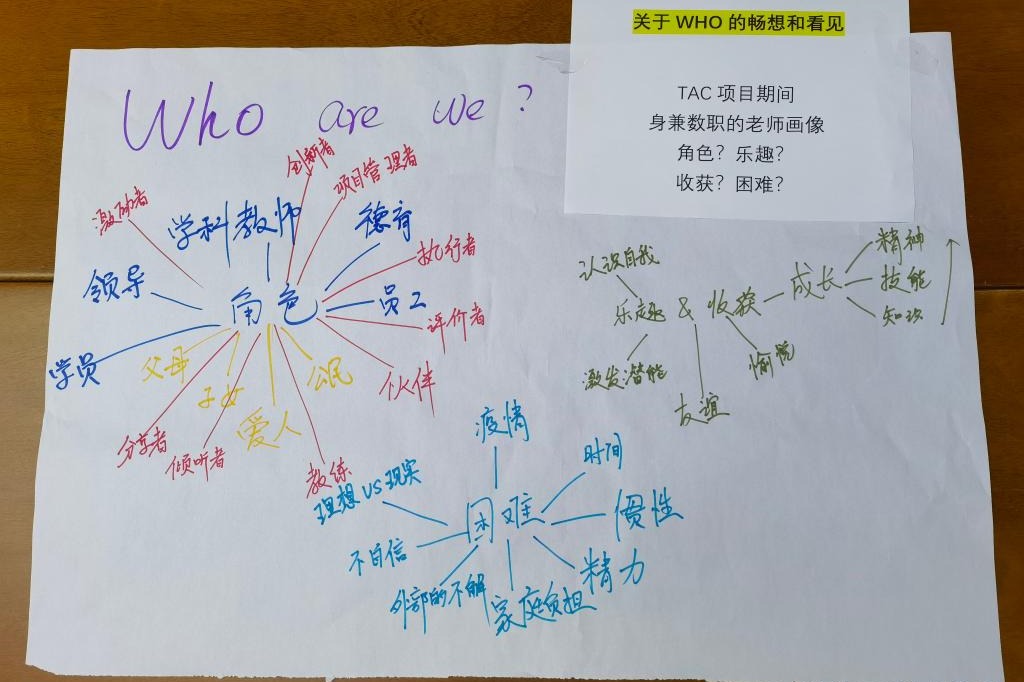 关于 WHO 的畅想和看见
TAC 项目期间
身兼数职的老师画像
角色？乐趣？
收获？困难？
Who are we ?
角色
激励者
学科教师
创新者
项目管理者
德育
执行者
员工
评价者
伙伴
公民
教练
爱人
子女
倾听者
分享者
父母
学员
领导
乐趣 & 收获
认识自我
激发潜能
友谊
愉悦
成长
精神
技能
知识
困难
疫情
时间
惯性
精力
家庭负担
外部的不解
不自信
理想 VS 现实